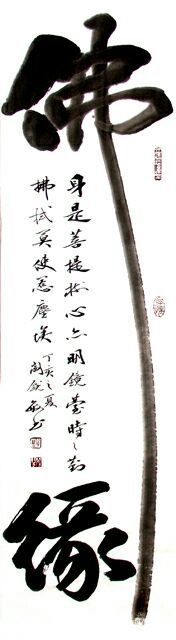 佛緣
身是菩提樹心如明鏡臺時々勤
拂拭莫使惹塵埃
丁亥之夏